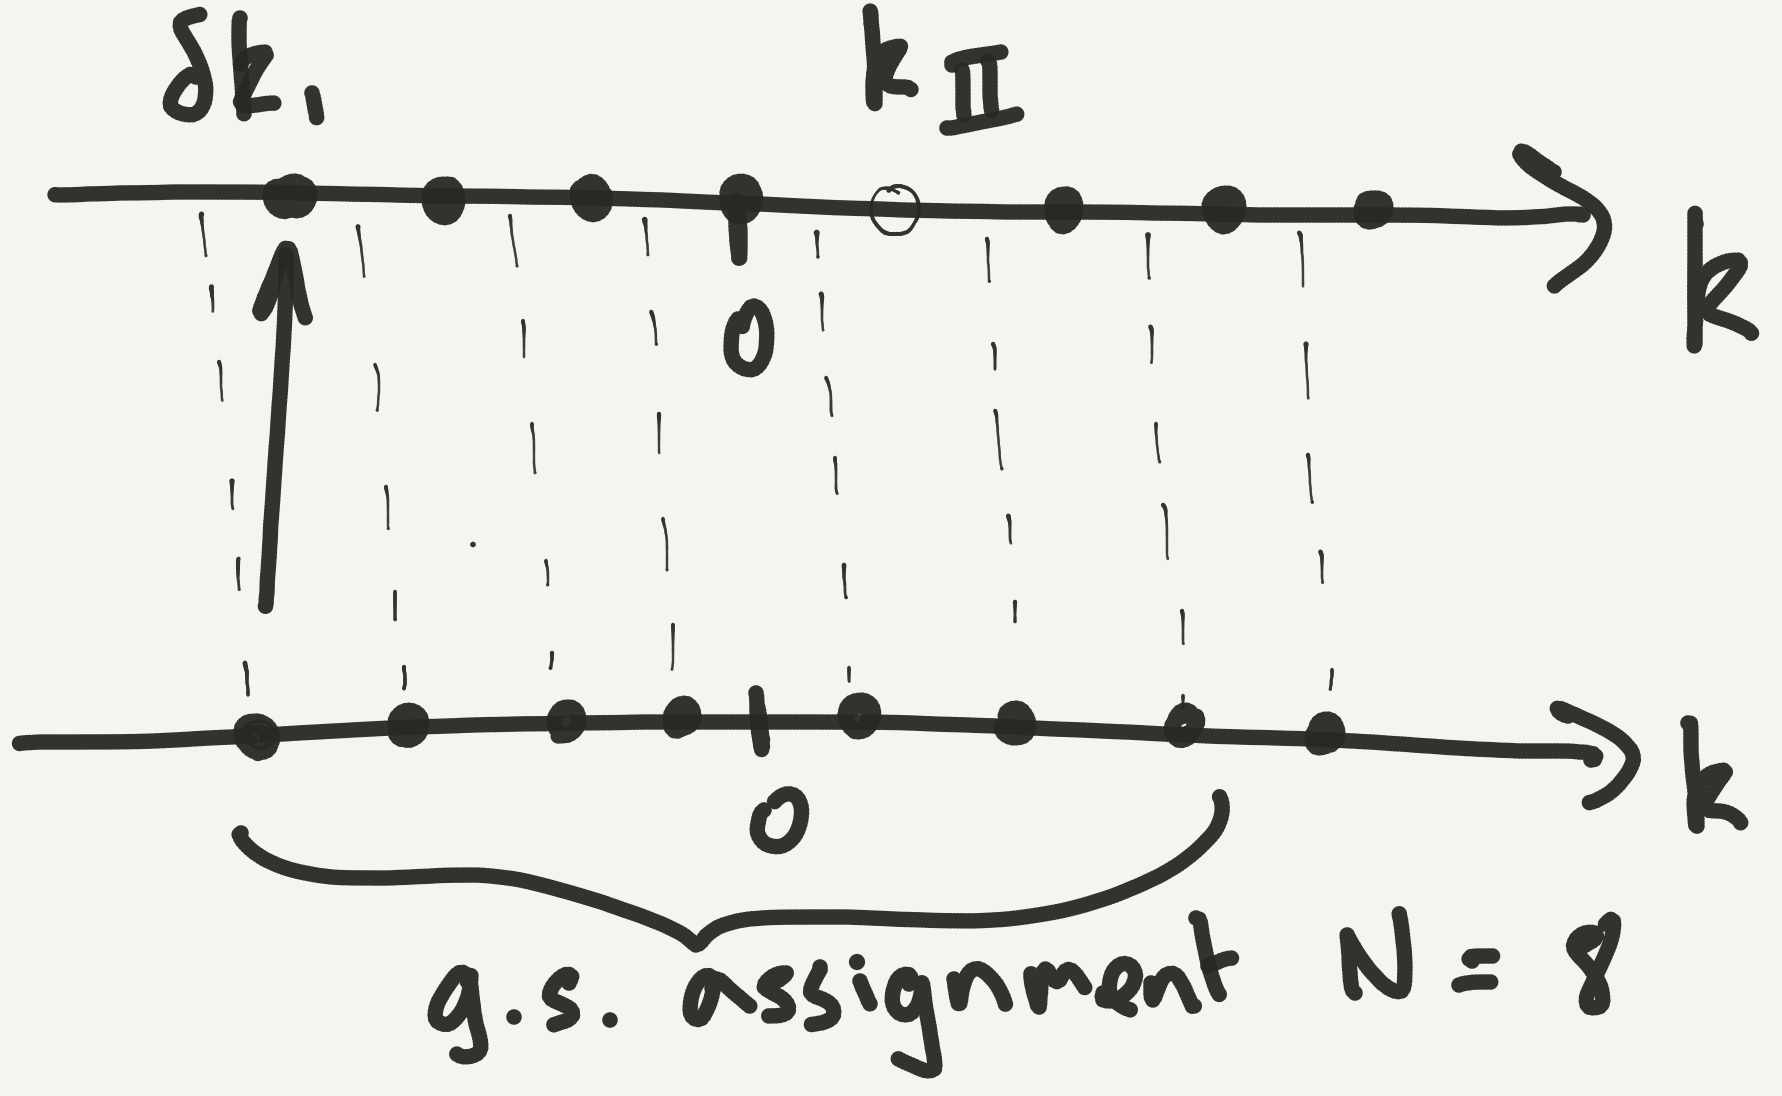 δk₁
k_II
k
0
k
0
g.s. assignment N = 8